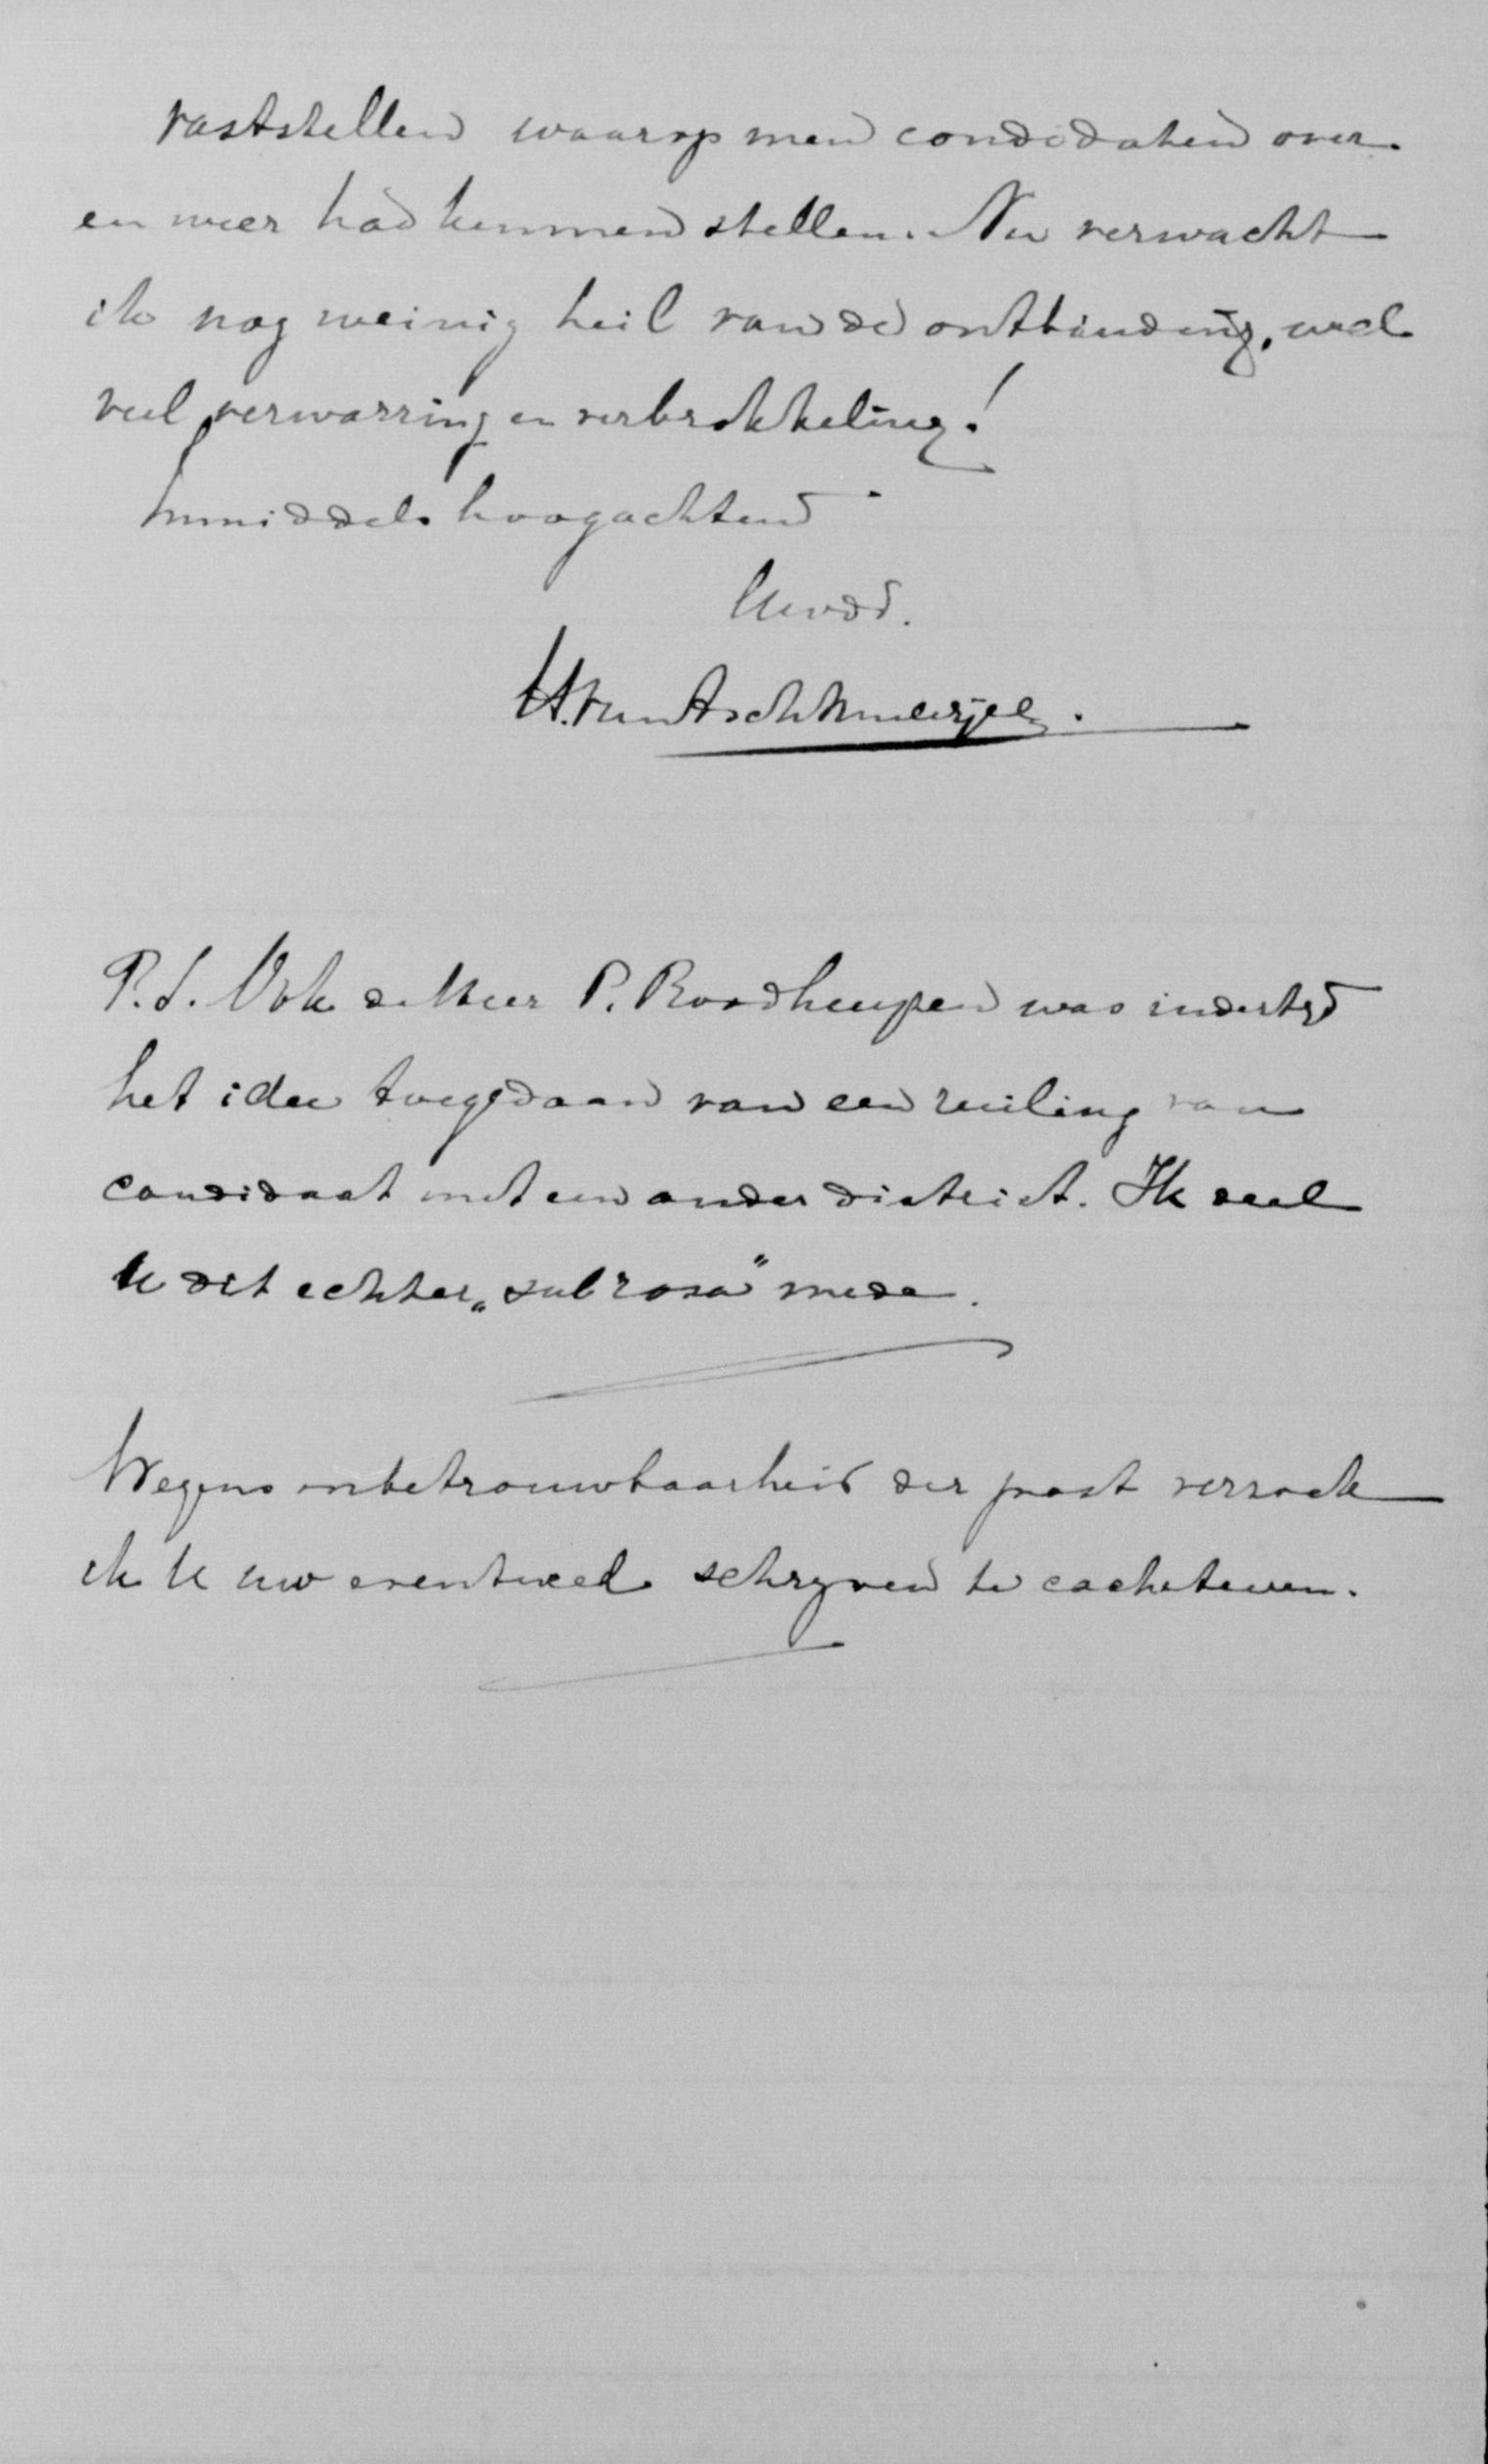 vaststellen waarop men candidaten over
en weer had kunnen stellen. Nu verwacht
ik nog weinig heil van de ontbinding, wel
veel verwarring en verbrokkeling!
Inmiddels hoogachtend
Uwdd.
H. van
P.S. Ook de Heer P. was indertyd
het idee toegedaan van een ruiling van
candidaat met een ander district. Ik deel
U dit echter „sub rosa" mede.
Wegens onbetrouwbaarheid der post verzoek
ik U uw eventueel schryven te cacheteeren.